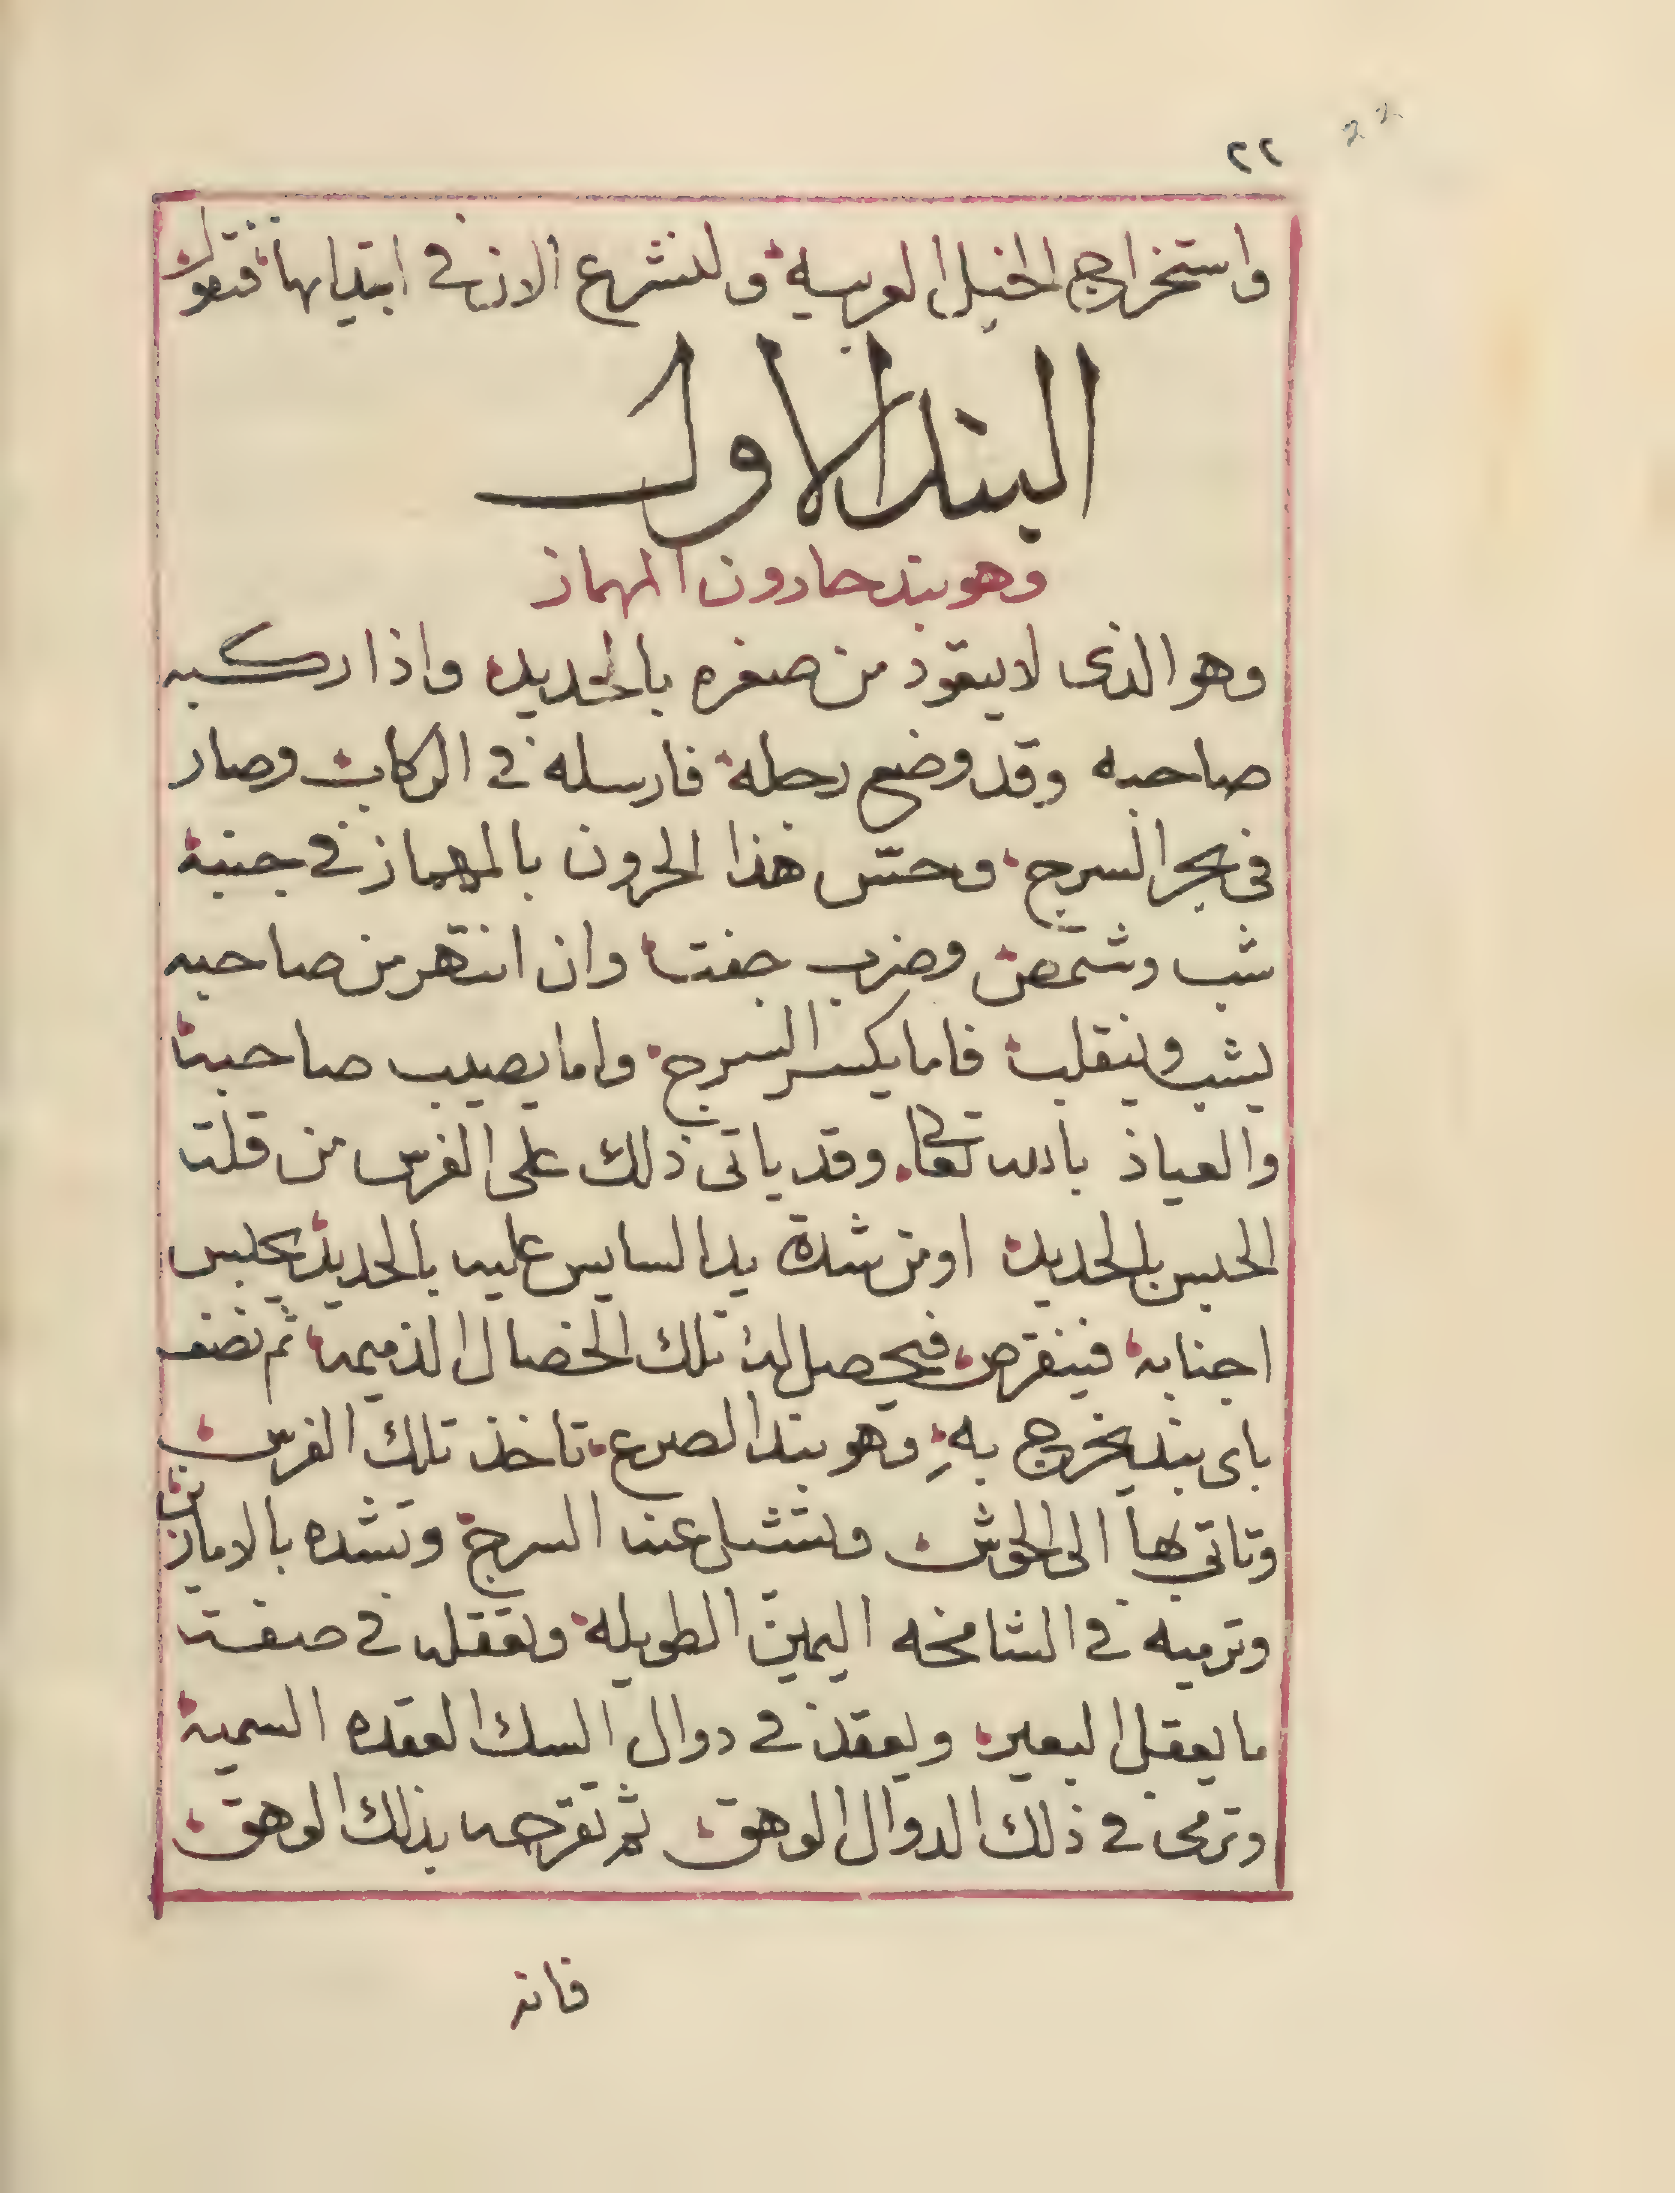 ٢٢
22
واستخراج الخيل العربية ولنشرع الان في ابتدايها فنقول
البند الاول
وهو بند حارون المهماز
وهو الذى لا يقود من صغره بالحديد واذا ركبه
صاحبه وقد وضع رجله فارسله في الركاب وصار
في بحر السرج وحسّ هذا الحرون بالمهماز في جنبه
شب وشمص وضرب جفتا وان انتهر من صاحبه
يشب وينقلب فاما يكسر السرج واما يصيب صاحبه
والعياذ بالله تعالى وقد ياتى ذلك على الفرس من قلت
الحبس بالحديد او من شدة يد السايس عليه بالحديد يحبس
اجنابه فينقرص فيحصل له تلك الخصال الذميمه ثم نصف
باى بند يخرج بهِ وهو بند الصرع تاخذ تلك الفرس
وتاتي بها الى الحوش وتشيل عنه السرج وتشده بالامازين
وترميه في الشامخه اليمين الطويلة وتعقله في صفت
ما يعقل البعير ويعقد في دوال السك العقده السمية
وترمى في ذلك الدوال الوهق ثم تقرحه بذلك الوهق
فانه